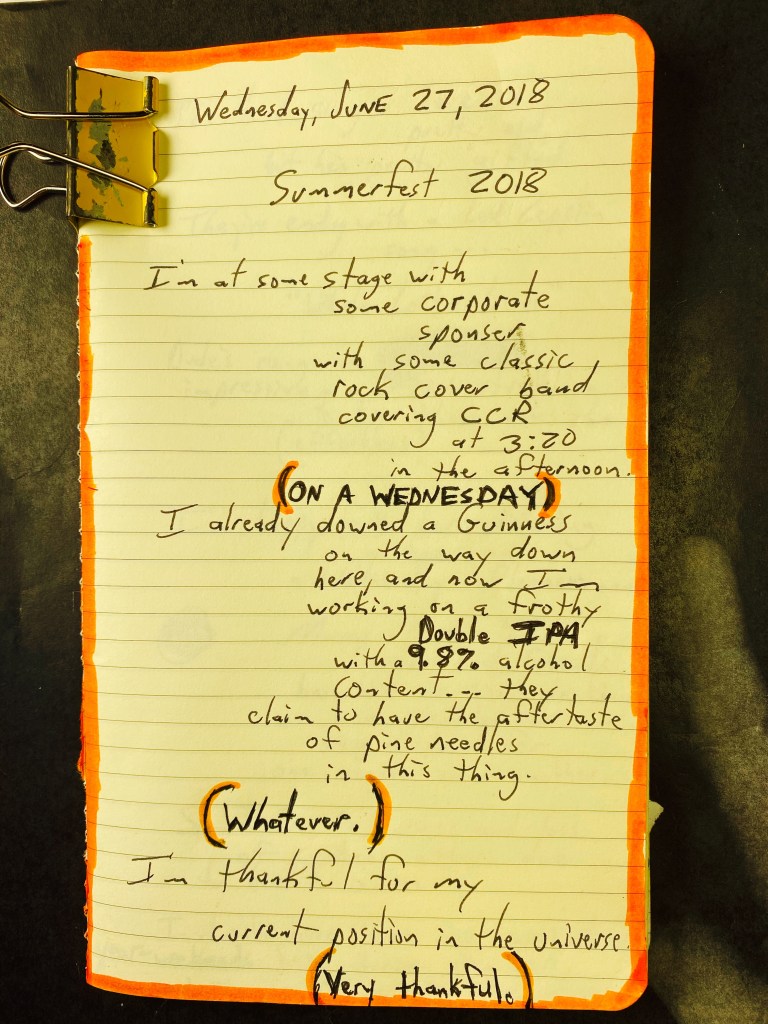 Wednesday, JUNE 27, 2018
Summerfest 2018
I'm at some stage with
some corporate
sponser
with some classic
rock cover band
covering CCR
at 3:20
in the afternoon.
(ON A WEDNESDAY)
I already downed a Guinness
on the way down
here, and now I'm
working on a frothy
Double IPA
with a 9.8% alcohol
content... they
claim to have the aftertaste
of pine needles
in this thing.
(Whatever.)
I'm thankful for my
current position in the universe.
(Very thankful.)